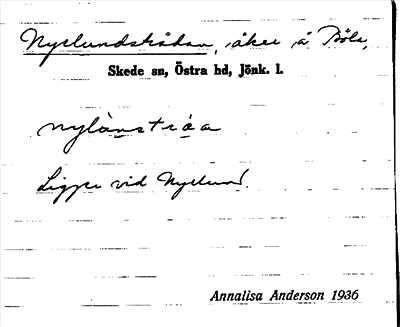 Nyelundsträdan, åker å Böla,
Skede sn, Östra hd, Jönk. l.
nylùnstràa
Ligger vid Nyelund.
Annalisa Anderson 1936